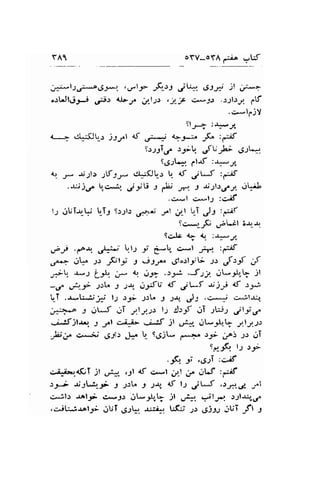 کتاب هفتم ۵۳۸ـ۵۳۷ ۳۸۹
جستن از نیروی بینائی ودیگر حواس، بسوی هستی راستین
گام بردارد. دوست عزیز، دراین مرحله دقتی فوق‌العاده
لازم‌است.
پرسید: چرا؟!
گفتم: مگر متوجه نیستی که امروز دیالکتیک چه
بیماری خطرناکی بوجود می‌آورد؟
پرسید: کدام بیماری؟
گفتم: کسانی که با دیالکتیک سروکار دارند سر به
طغیان برمی‌دارند و نظم و قانون را بپشت پا میزنند.
گفت: راست است.
گفتم: ولی آیا این امر تعجبی دارد؟ وآیا نباید آنان را
بدیده اغماض نگریست؟
پرسید: به چه علت؟
گفتم: بهتر است پاسخ ترا با تمثیلی بدهم. فرض
کن کودکی در خانواده‌ای معروف و توانگر در میان جمعی
از چاپلوسان بزرگ شود. چون به سن بلوغ رسد باخبر
شود که فرزند کسانی که تاکنون پدر و مادر خویش می‌
پنداشته‌است نیست، ولی پدر و مادر خود را نیز نشناسد. آیا
می‌توانی رفتار آن کودک را دربرابر آن کسان و همچنین
دربرابر چاپلوسان پیش از کشف حقیقت امر وبعدازکشف
آن در ذهن خود مجسم سازی؟ یا میل داری نخست من‌نظر
خود را بگویم؟
گفت: آری، تو بگو.
گفتم: گمان من این است که او، پیش ازآنکه‌بحقیقت
امر پی‌ببرد، کسانی را که پدر و مادر و خویشاوند خود
می‌پندارد بمراتب بیش از چاپلوسان دوست خواهد داشت
و اگر آنان روزی در تنگنا بیفتند بیاری آنان خواهدشتافت،